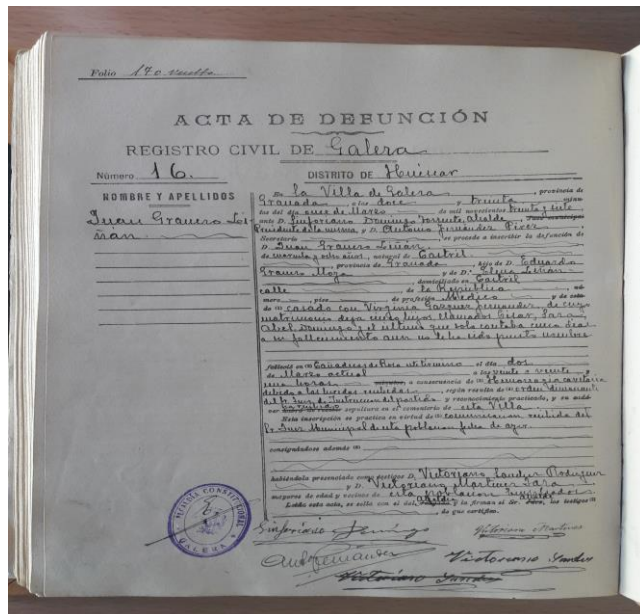 Folio 170 vuelto
ACTA DE DEFUNCIÓN
REGISTRO CIVIL DE Galera
Número 16. DISTRITO DE Huéscar
NOMBRE Y APELLIDOS
Juan Granero Li-
ñán
En la Villa de Galera, provincia de
Granada, a las doce y treinta minu-
tos del día once de Marzo de mil novecientos treinta y siete
ante D. Simforiano Domingo Torrente, Alcalde
Presidente de la misma, y D. Antonio Fernández Pérez
Secretario se procede a inscribir la defunción de
D. Juan Granero Liñán
de cuarenta y ocho años, natural de Castril
provincia de Granada, hijo de D. Eduardo
Granero Moya y de D.ª Elena Liñán
domiciliado en Castril
calle de la República nú-
mero, piso de profesión Médico y de esta-
do casado con Virginia Gázquez Fernández, de cuyo
matrimonio deja cinco hijos llamados César, Sara,
Abel, Domingo y el último que solo contaba cinco días
a su fallecimiento aun no le ha sido puesto nombre
falleció en de este término el día dos
de Marzo actual a las veinte y
una horas, a consecuencia de
debida a las heridas recibidas, según resulta de orden
del Sr. Juez de Instrucción del partido y reconocimiento practicado, y su cadá-
ver ha recibido sepultura en el cementerio de esta Villa.
Esta inscripción se practica en virtud de comunicación recibida del
Sr. Juez Municipal de esta población fecha de ayer.
consignándose además
habiéndola presenciado como testigos D. Victoriano Sánchez Rodríguez
y D. Victoriano Martínez Jara
mayores de edad y vecinos de esta población
Leída esta acta, se sella con el del y la firman el Sr. los testigos
de que certifico.
Simforiano Domingo Victoriano Martínez
Ant Fernández Victoriano Sánchez
Victoriano Sánchez
ALCALDÍA CONSTITUCIONAL
GALERA